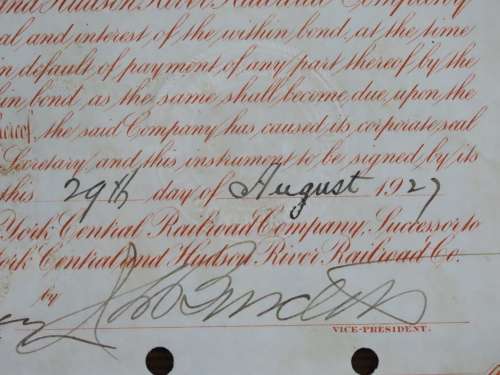 and Hudson River Railroad Company
al and interest of the within bond, at the time
n default of payment of any part thereof by the
hin bond, as the same shall become due, upon the
hereof, the said Company has caused its corporate seal
Secretary and this instrument to be signed by its
this 29th day of August 1927
York Central Railroad Company, Successor to
ork Central and Hudson River Railroad Co.
by
VICE-PRESIDENT.